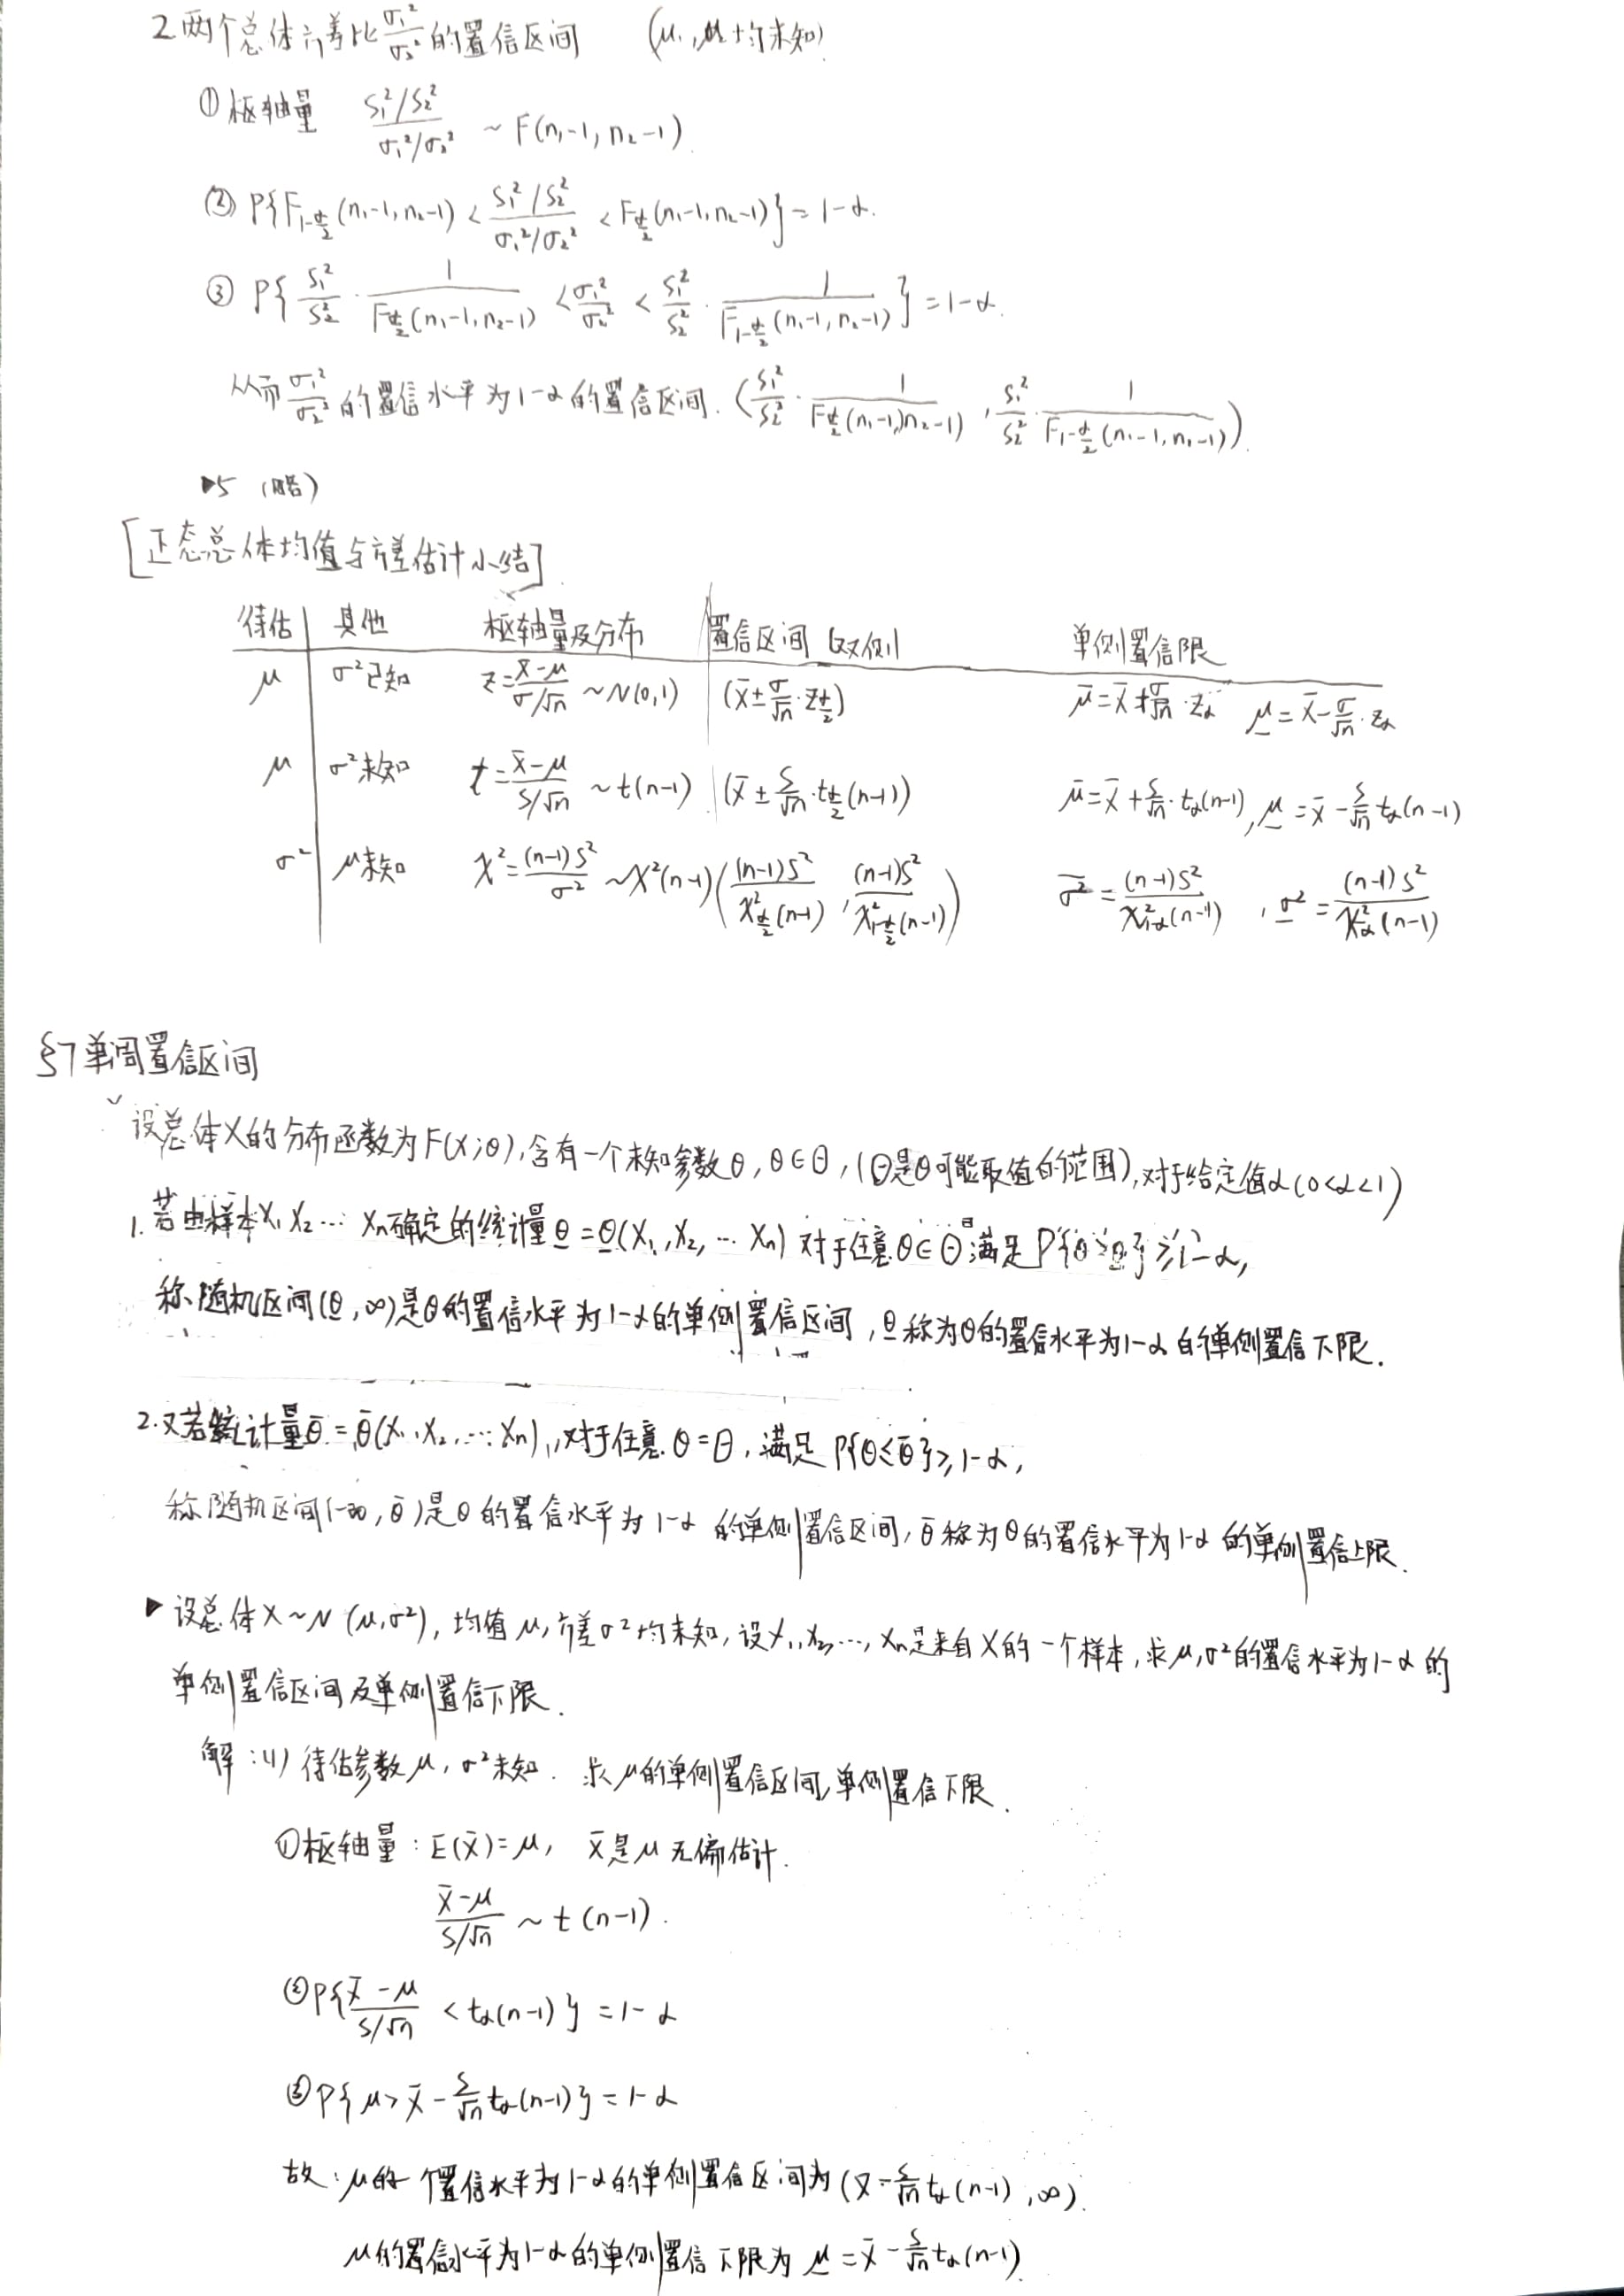 2.两个总体方差比 σ₁²/σ₂² 的置信区间 (μ₁,μ₂均未知)
①枢轴量 (S₁²/S₂²)/(σ₁²/σ₂²) ~ F(n₁-1, n₂-1)
② P{F_{1-α/2}(n₁-1,n₂-1) < (S₁²/S₂²)/(σ₁²/σ₂²) < F_{α/2}(n₁-1,n₂-1)} = 1-α.
③ P{ S₁²/S₂² · 1/F_{α/2}(n₁-1,n₂-1) < σ₁²/σ₂² < S₁²/S₂² · 1/F_{1-α/2}(n₁-1,n₂-1) } = 1-α.
从而 σ₁²/σ₂² 的置信水平为1-α的置信区间. (S₁²/S₂² · 1/F_{α/2}(n₁-1,n₂-1), S₁²/S₂² · 1/F_{1-α/2}(n₁-1,n₁-1)).
▶5 (略)
[正态总体均值与方差估计小结]
待估 其他 枢轴量及分布 置信区间(双侧) 单侧置信限
μ σ²已知 z=(x̄-μ)/(σ/√n) ~N(0,1) (x̄±σ/√n·z_{α/2}) μ̄=x̄+σ/√n·z_α μ̲=x̄-σ/√n·z_α
μ σ²未知 t=(x̄-μ)/(S/√n) ~t(n-1) (x̄±S/√n·t_{α/2}(n-1)) μ̄=x̄+S/√n·t_α(n-1), μ̲=x̄-S/√n t_α(n-1)
σ² μ未知 χ²=(n-1)S²/σ² ~χ²(n-1) ((n-1)S²/χ²_{α/2}(n-1), (n-1)S²/χ²_{1-α/2}(n-1)) σ̄²=(n-1)S²/χ²_{1-α}(n-1), σ̲²=(n-1)S²/χ²_α(n-1)
§7 单侧置信区间
设总体X的分布函数为F(x;θ),含有一个未知参数θ,θ∈Θ,(Θ是θ可能取值的范围),对于给定值α(0<α<1)
1.若由样本X₁X₂…Xn确定的统计量θ̲=θ̲(X₁,X₂,…Xn)对于任意θ∈Θ满足P{θ>θ̲}≥1-α,
称随机区间(θ̲,∞)是θ的置信水平为1-α的单侧置信区间,θ̲称为θ的置信水平为1-α的单侧置信下限.
2.又若统计量θ̄=θ̄(X₁,X₂,…Xn),对于任意θ=Θ,满足P{θ≤θ̄}≥1-α,
称随机区间(-∞,θ̄)是θ的置信水平为1-α的单侧置信区间,θ̄称为θ的置信水平为1-α的单侧置信上限.
▶设总体X~N(μ,σ²),均值μ,方差σ²均未知,设X₁,X₂,…,Xn是来自X的一个样本,求μ,σ²的置信水平为1-α的
单侧置信区间及单侧置信下限.
解:(1)待估参数μ,σ²未知.求μ的单侧置信区间,单侧置信下限.
①枢轴量:E(x̄)=μ, x̄是μ无偏估计.
(x̄-μ)/(S/√n) ~ t(n-1).
②P{(x̄-μ)/(S/√n) < t_α(n-1)} = 1-α
③P{μ>x̄-S/√n t_α(n-1)} = 1-α
故:μ的一个置信水平为1-α的单侧置信区间为(x̄-S/√n t_α(n-1),∞).
μ的置信水平为1-α的单侧置信下限为 μ̲=x̄-S/√n t_α(n-1).